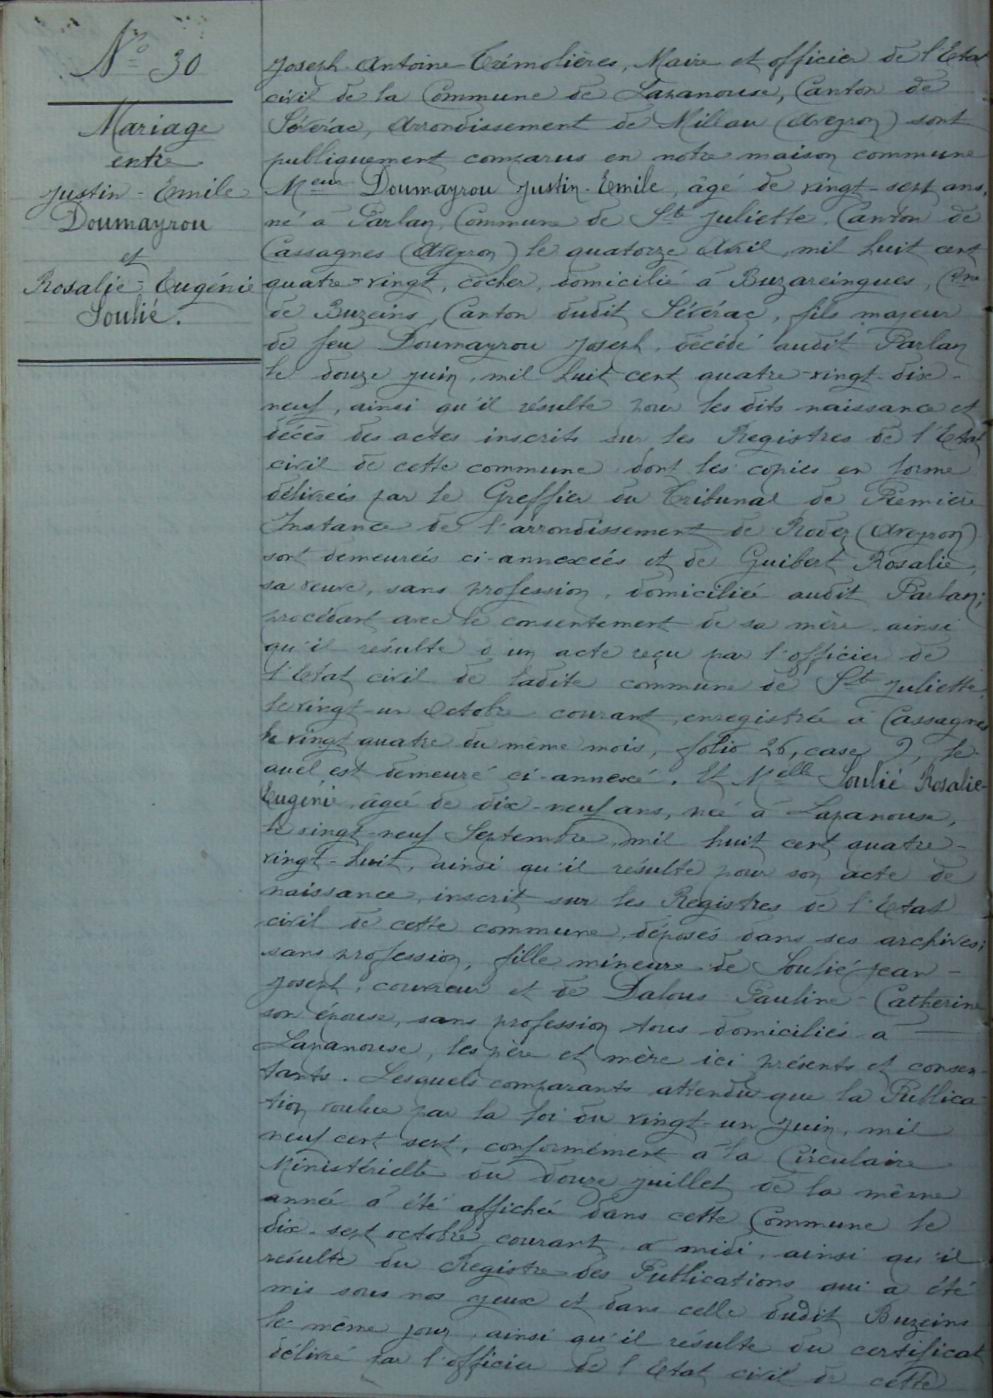 N° 30
Mariage
entre
Justin-Emile
Doumayrou
et
Rosalie-Eugénie
Soulié.
Joseph-Antoine Trémolières, Maire et officier de l'Etat
civil de la Commune de Lapanouse, Canton de
Sévérac, Arrondissement de Millau (Aveyron) sont
publiquement comparus en notre maison commune
Meur Doumayrou Justin-Emile, âgé de vingt-sept ans,
né à Parlan, Commune de Ste Juliette, Canton de
Cassagnes (Aveyron) le quatorze Avril, mil huit cent
quatre-vingt, cocher, domicilié à Buzareingues, Cne
de Buzeins, Canton dudit Sévérac, fils majeur
de feu Doumayrou Joseph, décédé audit Parlan
le douze juin, mil huit cent quatre-vingt-dix-
neuf, ainsi qu'il résulte pour les dits naissance et
décès des actes inscrits sur les Registres de l'Etat
civil de cette commune dont les copies en forme
délivrées par le Greffier du Tribunal de Première
Instance de l'arrondissement de Rodez (Aveyron)
sont demeurées ci-annexées et de Guibert Rosalie,
sa veuve, sans profession, domiciliée audit Parlan;
procédant avec le consentement de sa mère, ainsi
qu'il résulte d'un acte reçu par l'officier de
l'Etat civil de ladite commune de Ste Juliette
le vingt-un Octobre courant, enregistré à Cassagnes
le vingt quatre du même mois, folio 26, case 9, le-
quel est demeuré ci-annexé. Et Melle Soulié Rosalie-
Eugénie, âgée de dix-neuf ans, née à Lapanouse,
le vingt-neuf Septembre, mil huit cent quatre-
vingt-huit, ainsi qu'il résulte pour son acte de
naissance, inscrit sur les Registres de l'Etat
civil de cette commune, déposés dans ses archives;
sans profession, fille mineure de Soulié Jean-
Joseph, couvreur et de Dalous Pauline-Catherine
son épouse, sans profession tous domiciliés à
Lapanouse, les père et mère ici présents et consen-
tants. Lesquels comparants attendu que la Publica-
tion voulue par la loi du vingt-un juin, mil
neuf cent sept, conformément à la Circulaire
Ministérielle du douze juillet de la même
année a été affichée dans cette Commune le
dix-sept octobre courant, à midi, ainsi qu'il
résulte du Registre des Publications qui a été
mis sous nos yeux et dans celle dudit Buzeins
le même jour, ainsi qu'il résulte du certificat
délivré par l'officier de l'Etat civil de cette